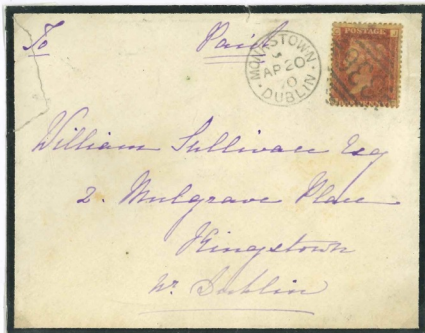 To Paid
POSTAGE
MONKSTOWN
AP 20
70
DUBLIN
William Sullivan Esq
2. Mulgrave Place
Kingstown
Nr. Dublin